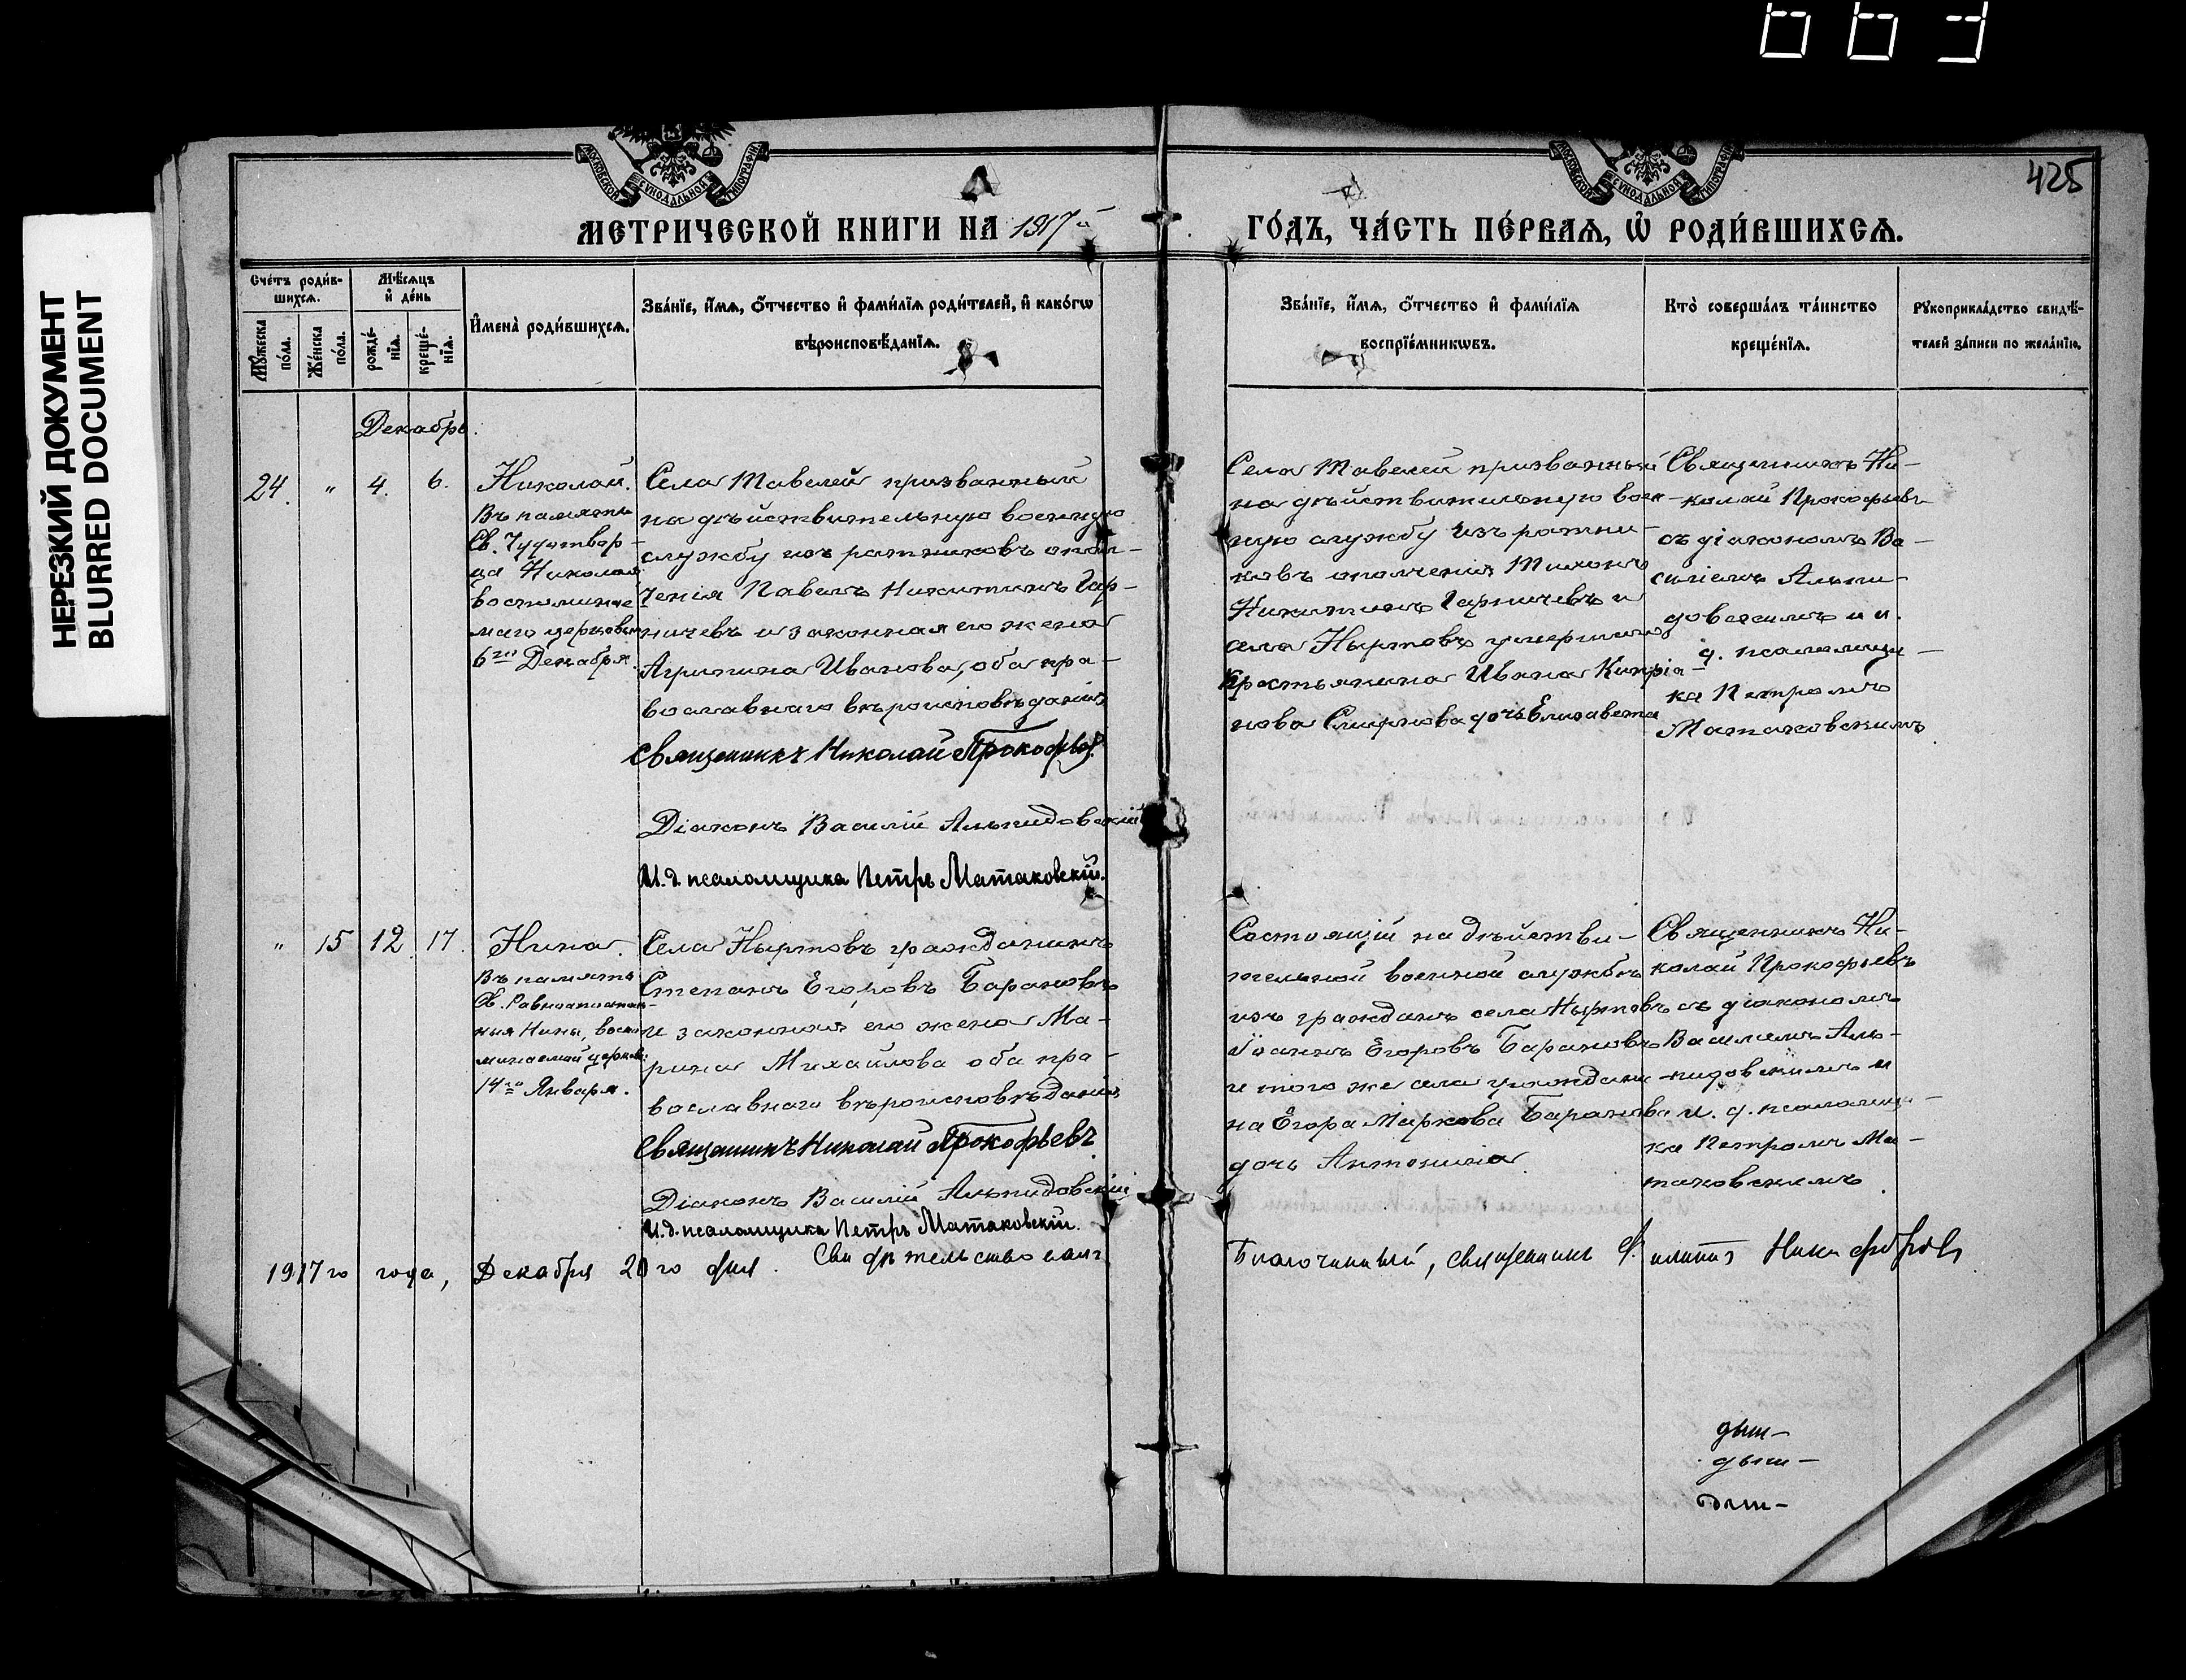 663
НЕРЕЗКИЙ ДОКУМЕНТ
BLURRED DOCUMENT
МОСКОВСКОЙ СѴНОДАЛЬНОЙ ТИПОГРАФІИ
МОСКОВСКОЙ СѴНОДАЛЬНОЙ ТИПОГРАФІИ
425
МЕТРИЧЕСКОЙ КНИГИ НА 1917й
ГО́ДЪ, ЧА́СТЬ ПЕ́РВАЯ, Ѿ РОДИ́ВШИХСЯ.
Сче́тъ роди́в-
шихся.
Мѣ́сяцъ
и҆ де́нь
Мꙋ́жеска по́ла.
Же́нска по́ла.
рожде́-нїя.
креще́-нїя.
И҆мена̀ роди́вшихся.
Зва́нїе, и҆́мя, ѻ҆́тчество и҆ фами́лїя роди́телей, и҆ како́гѡ
вѣроисповѣ́данїя.
Зва́нїе, и҆́мя, ѻ҆́тчество и҆ фами́лїя
воспрїе́мникѡвъ.
Кто̀ соверша́лъ та́инство
креще́нїя.
Рꙋкоприкла́дство свидѣ́-
телей за́писи по жела́нїю.
Декабрь.
24. " 4. 6.
Николай.
Въ память
Св. Чудотвор-
ца Николая
воспоминае
маго церковью
6го Декабря.
Села Мавлей призванный
на дѣйствительную военную
службу изъ ратниковъ опол-
ченія Павелъ Никитинъ Гар-
ничевъ и законная его жена
Агрипина Иванова, оба пра-
вославнаго вѣроисповѣданія
Священникъ Николай Прокофьев.
Діаконъ Василій Альпидовскій
И. д. псаломщика Петръ Матаковскій.
Села Мавлей призванный
на дѣйствительную воен-
ную службу изъ ратни-
ковъ ополченія Тихонъ
Никитинъ Гарничевъ и
села Ныртовъ умершаго
крестьянина Ивана Кипріа-
нова Смирнова дочь Елизавета
Священникъ Ни-
колай Прокофьевъ
съ діакономъ Ва-
силіемъ Альпи-
довскимъ и и.
д. псаломщи-
ка Петромъ
Матаковскимъ
" 15 12. 17.
Нина.
Въ память
Св. Равноапостоль-
ныя Нины, воспо
минаемой церковью
14го Января.
Села Ныртовъ гражданинъ
Степанъ Егоровъ Барановъ
и законная его жена Ма-
рина Михайлова оба пра-
вославнаго вѣроисповѣданія
Священникъ Николай Прокофьевъ.
Діаконъ Василій Альпидовскій
И. д. псаломщика Петръ Матаковскій.
Состоящій на дѣйстви-
тельной военной службѣ
изъ гражданъ села Ныртовъ
Іоаннъ Егоровъ Барановъ
и того же села граждани
на Егора Маркова Баранова
дочь Антонина
Священникъ Ни-
колай Прокофьевъ
съ діакономъ
Василіемъ Аль-
пидовскимъ и
и. д. псаломщи-
ка Петромъ Ма-
таковскимъ.
1917го года, Декабря 20го дня. Свидѣтельствовалъ
Благочинный, священникъ Филиппъ Никифоровъ